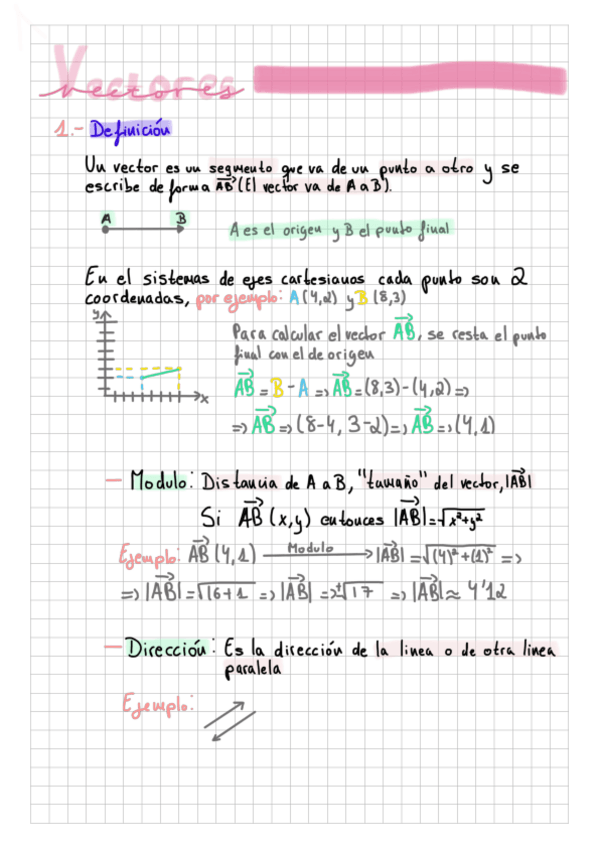 Vectores
vectores
1.- Definición
Un vector es un segmento que va de un punto a otro y se
escribe de forma A⃗B⃗ (El vector va de A a B).
A B
A es el origen y B el punto final
En el sistemas de ejes cartesianos cada punto son 2
coordenadas, por ejemplo: A (4,2) y B (8,3)
y
x
Para calcular el vector A⃗B⃗, se resta el punto
final con el de origen
A⃗B⃗ = B - A => A⃗B⃗ = (8,3)-(4,2) =>
=> A⃗B⃗ => (8-4, 3-2) => A⃗B⃗ => (4,1)
- Modulo: Distancia de A a B, "tamaño" del vector, |A⃗B⃗|
Si A⃗B⃗ (x,y) entonces |A⃗B⃗| = √x²+y²
Ejemplo: A⃗B⃗ (4,1) Modulo → |A⃗B⃗| = √(4)²+(1)² =>
=> |A⃗B⃗| = √16+1 => |A⃗B⃗| => ±√17 => |A⃗B⃗| ≈ 4'12
- Dirección: Es la dirección de la linea o de otra linea
paralela
Ejemplo: